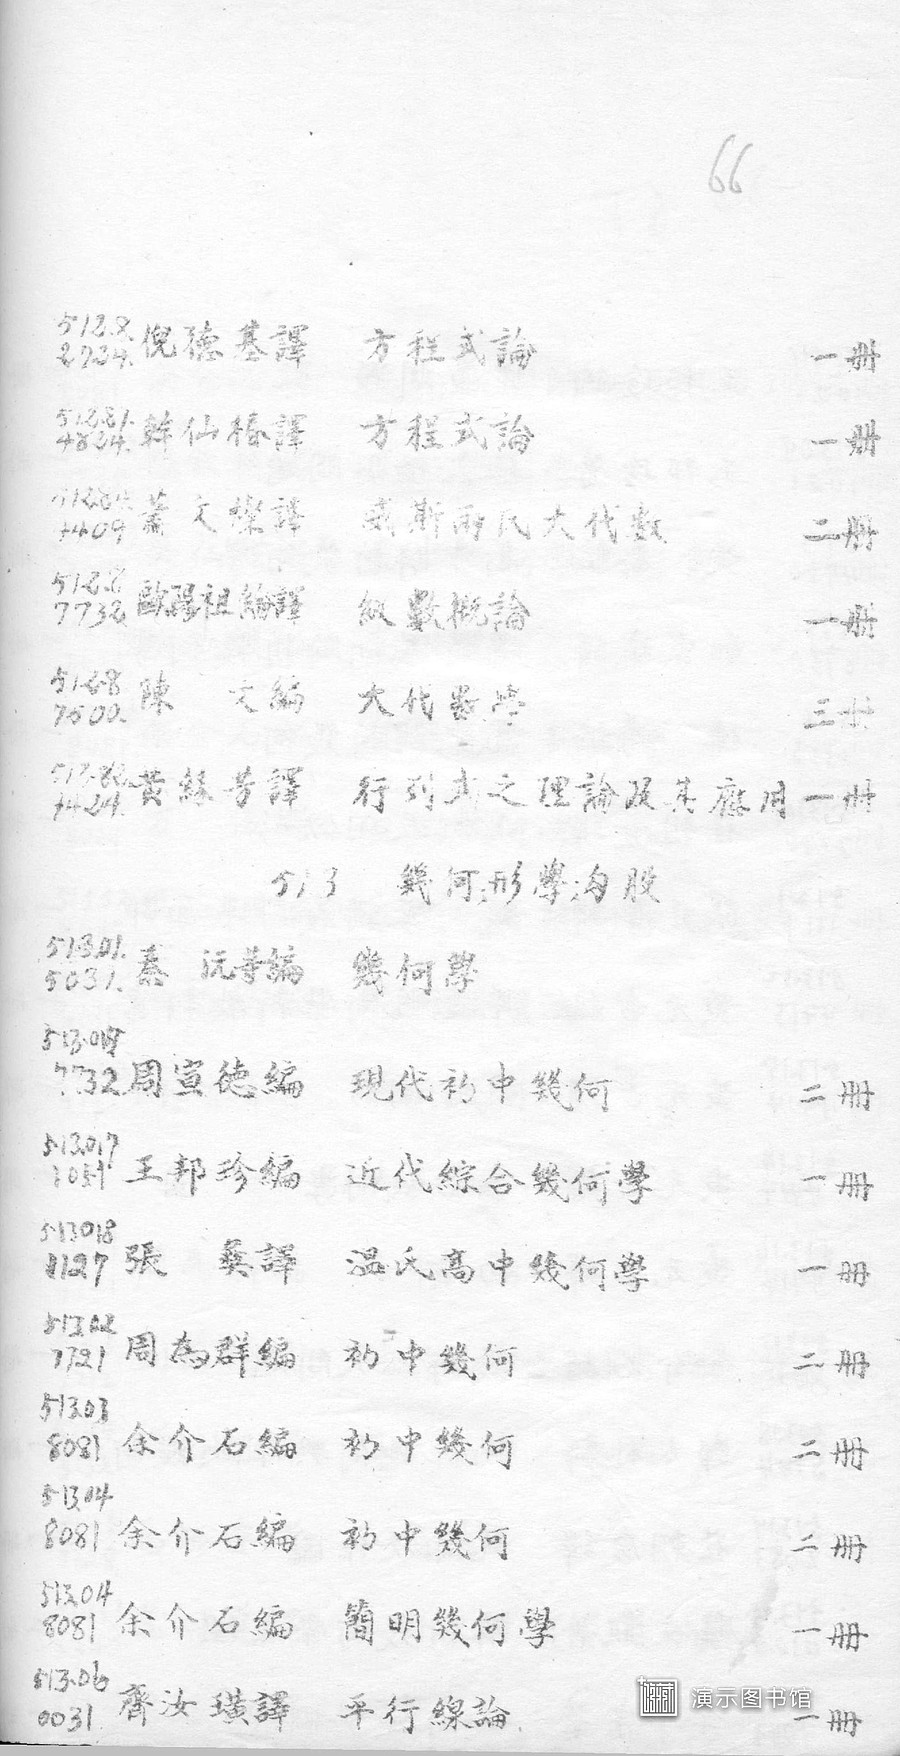 66
512.8 倪德基譯 方程式論 一册
2724.
512.81. 韓仙椿譯 方程式論 一册
4824.
蕭文燦譯 威斯兩氏大代數 二册
4409
512.8 歐陽祖綸譯 級數概論 一册
7732
512.8 陳 文編 大代數學 三册
7500.
512.82. 黃緣芳譯 行列式之理論及其應用 一册
4424.
513 幾何;形學;勾股
513.01. 秦 沅等編 幾何學
5031.
513.017
7732 周宣德編 現代初中幾何 二册
513.017
1051 王邦珍編 近代綜合幾何學 一册
513.018
1127 張 彝譯 温氏高中幾何學 一册
513.02
7721 周為群編 初中幾何 二册
513.03
8081 余介石編 初中幾何 二册
513.04
8081 余介石編 初中幾何 二册
513.04
8081 余介石編 簡明幾何學 一册
513.06
0031 齊汝璜譯 平行線論 一册
演示图书馆